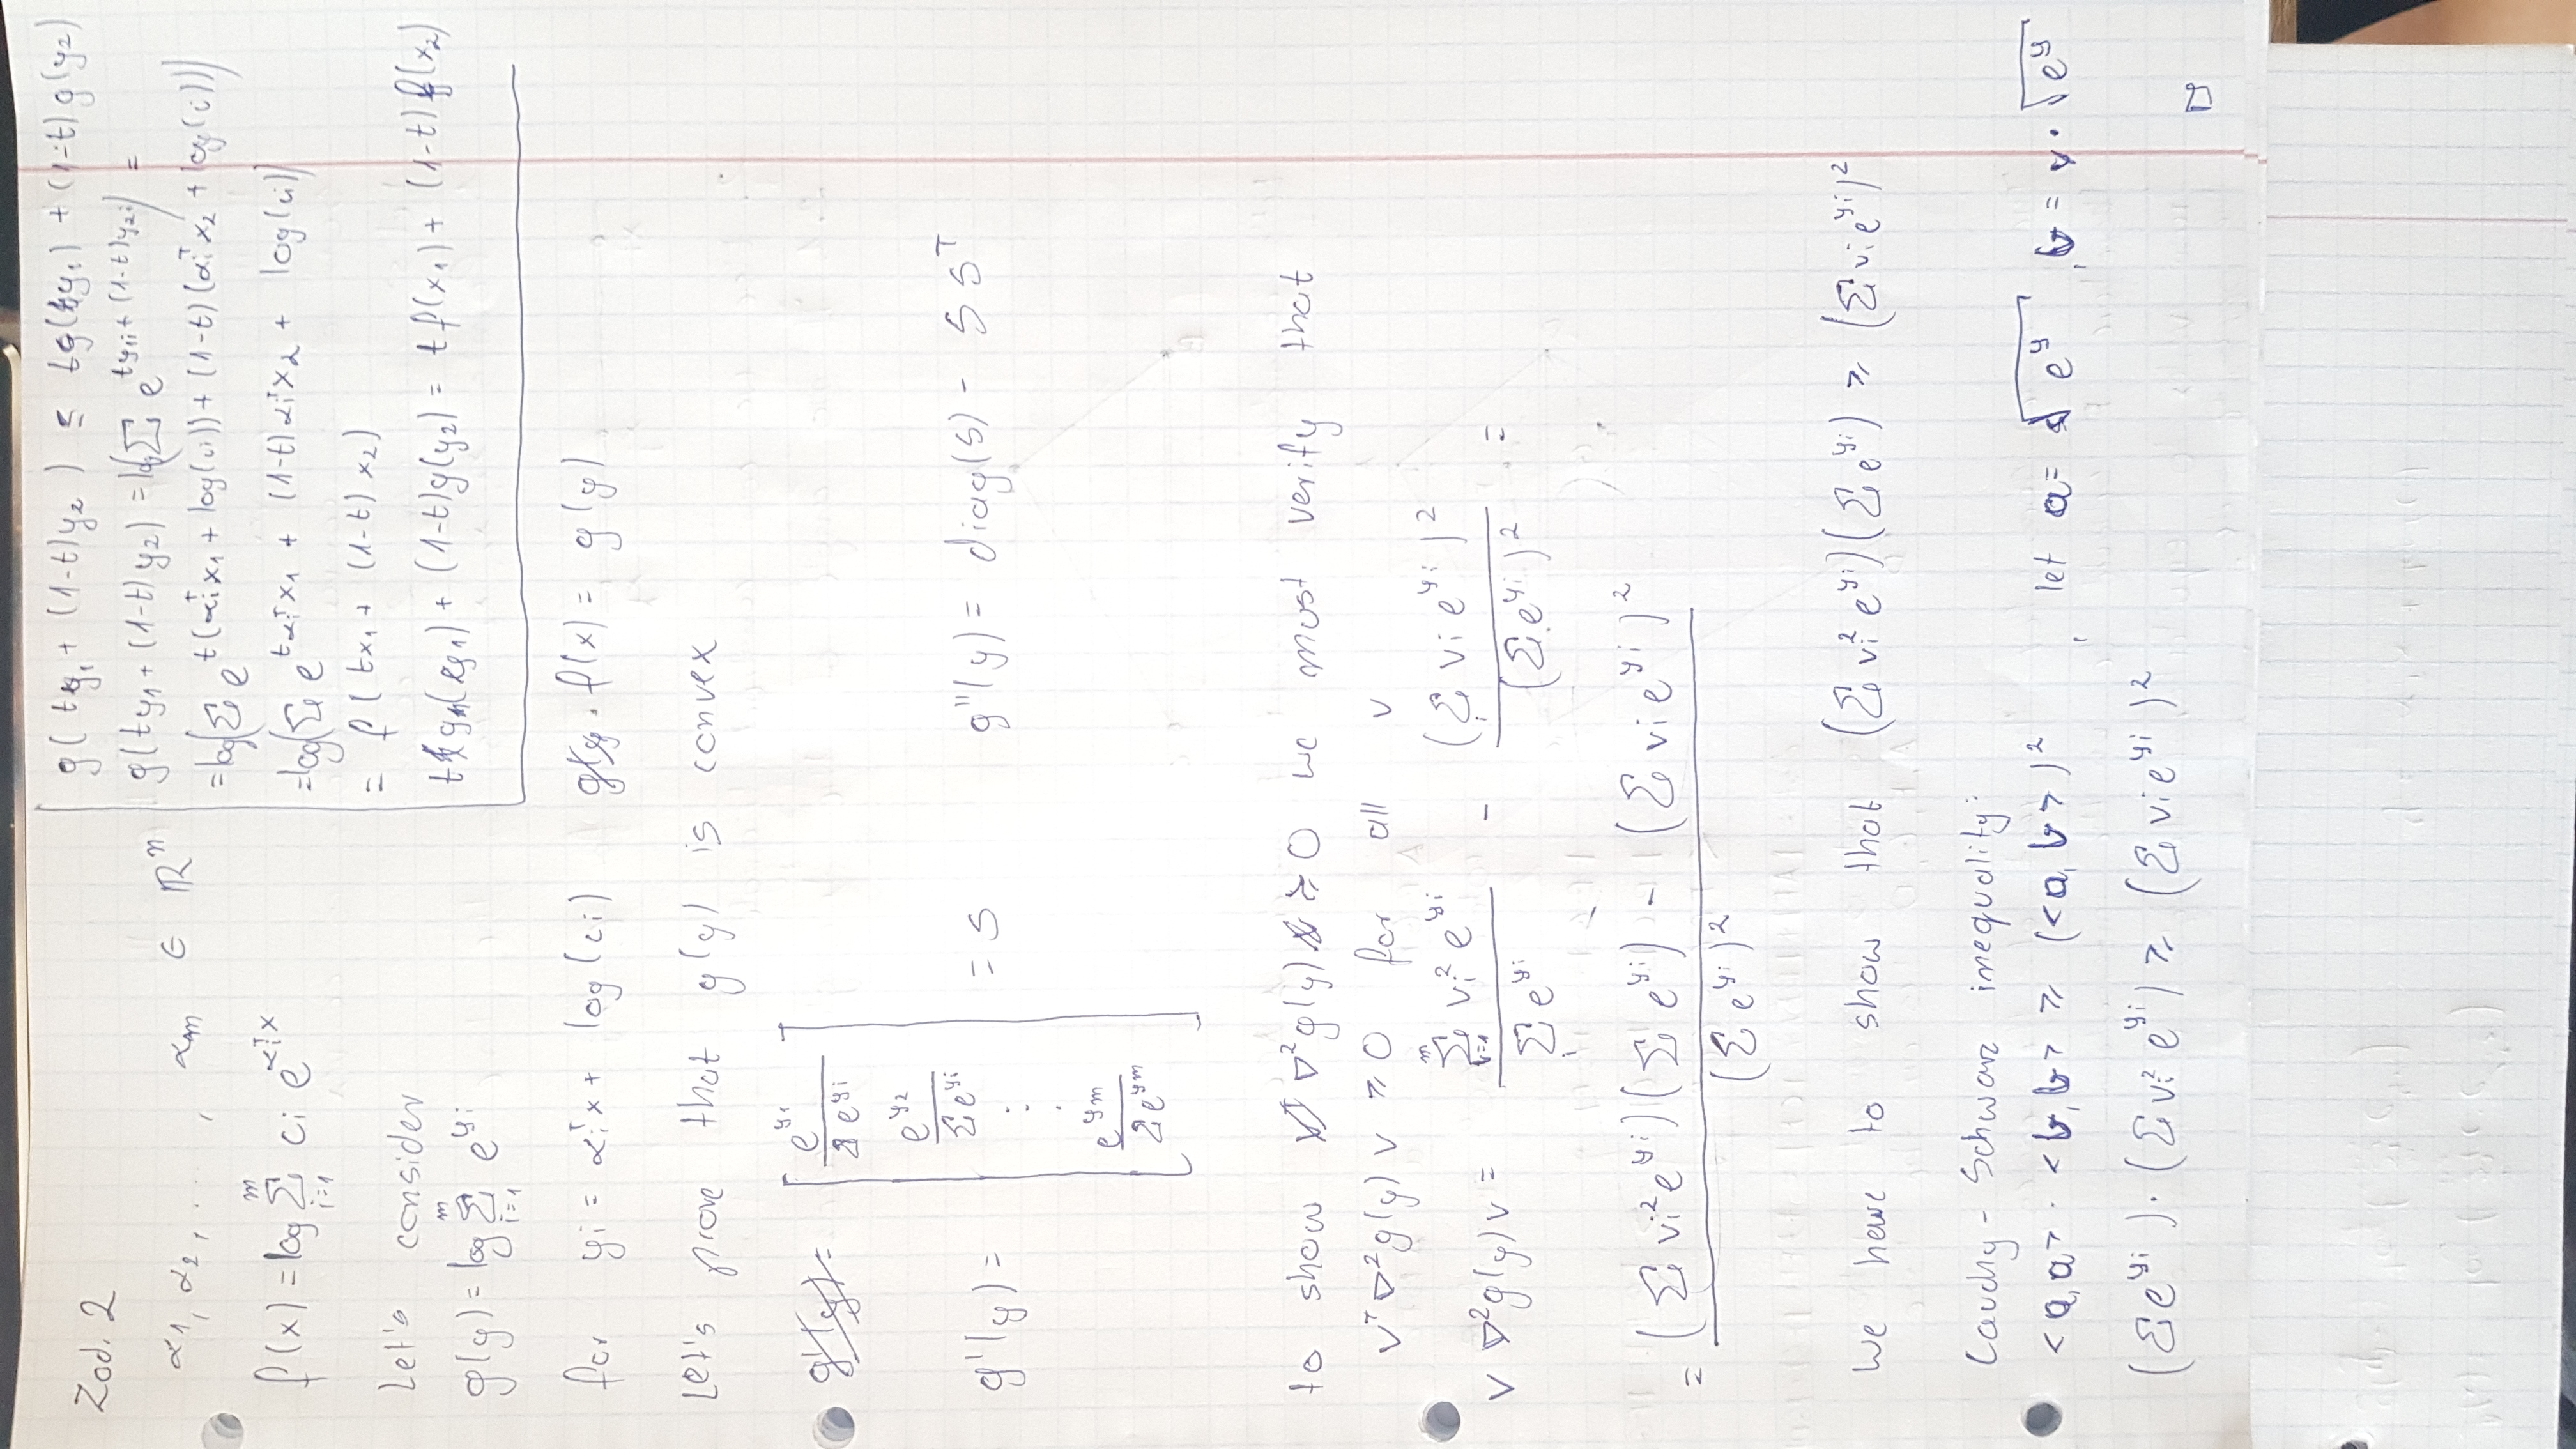 Zad. 2
α1, α2, ..., αm ∈ ℝⁿ
f(x) = log Σ_{i=1}^{m} ci e^{αiᵀx}
Let's consider
g(y) = log Σ_{i=1}^{m} e^{yi}
g(ty1 + (1-t)y2) ≤ tg(y1) + (1-t)g(y2)
g(ty1 + (1-t)y2) = log(Σ e^{ty1i + (1-t)y2i}) =
= log(Σ e^{t(αiᵀx1 + log(ci)) + (1-t)(αiᵀx2 + log(ci))})
= log(Σ e^{tαiᵀx1 + (1-t)αiᵀx2 + log(ci)})
= f(tx1 + (1-t)x2)
t g(y1) + (1-t)g(y2) = t f(x1) + (1-t) f(x2)
for yi = αiᵀx + log(ci) f(x) = g(y)
Let's prove that g(y) is convex
g'(y) = [ e^{y1}/Σe^{yi} e^{y2}/Σe^{yi} ⋮ e^{ym}/Σe^{ym} ] = s g''(y) = diag(s) - ssᵀ
to show ∇²g(y) ≥ 0 we must verify that
vᵀ∇²g(y)v ≥ 0 for all v
v ∇²g(y)v = (Σ_{v=1}^{m} vi² e^{yi})/(Σ_i e^{yi}) - (Σ_i vi e^{yi})²/(Σ e^{yi})² =
= ((Σ vi² e^{yi})(Σ e^{yi}) - (Σ vi e^{yi})²)/(Σ e^{yi})²
We have to show that (Σ vi² e^{yi})(Σ e^{yi}) ≥ (Σ vi e^{yi})²
Cauchy-Schwarz inequality:
<a,a> · <b,b> ≥ (<a,b>)², let a = √e^y, b = v · √e^y
(Σe^{yi}) · (Σvi² e^{yi}) ≥ (Σ vi e^{yi})²
□